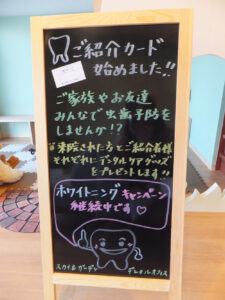 ご紹介カード
始めました!!
ご家族やお友達
みんなで虫歯予防を
しませんか!?
※来院された方とご紹介者様
それぞれにデンタルケアグッズ
をプレゼントします!!
ホワイトニングキャンペーン
継続中です♡
スカイ&ガーデン デンタルオフィス